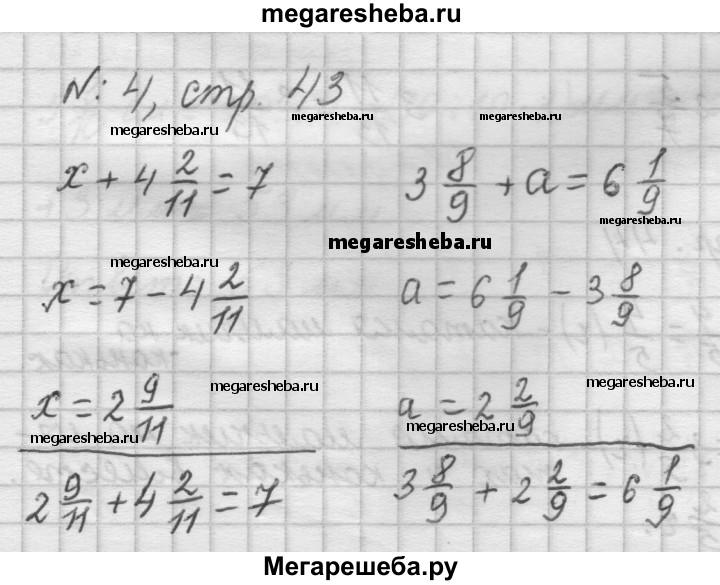 megaresheba.ru
№ 4, стр. 43
megaresheba.ru megaresheba.ru megaresheba.ru
x + 4 2/11 = 7 3 8/9 + a = 6 1/9
megaresheba.ru
megaresheba.ru
megaresheba.ru
x = 7 - 4 2/11 a = 6 1/9 - 3 8/9
megaresheba.ru megaresheba.ru
x = 2 9/11 a = 2 2/9
megaresheba.ru megaresheba.ru
2 9/11 + 4 2/11 = 7 3 8/9 + 2 2/9 = 6 1/9
Мегарешеба.ру